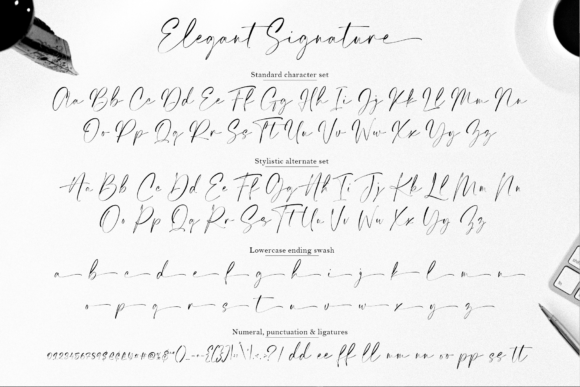 Elegant Signature
Standard character set
Aa Bb Cc Dd Ee Ff Gg Hh Ii Jj Kk Ll Mm Nn
Oo Pp Qq Rr Ss Tt Uu Vv Ww Xx Yy Zz
Stylistic alternate set
Aa Bb Cc Dd Ee Ff Gg Hh Ii Jj Kk Ll Mm Nn
Oo Pp Qq Rr Ss Tt Uu Vv Ww Xx Yy Zz
Lowercase ending swash
a b c d e f g h i j k l m n
o p q r s t u v w x y z
Numeral, punctuation & ligatures
dd ee ff ll mm nn oo pp ss tt